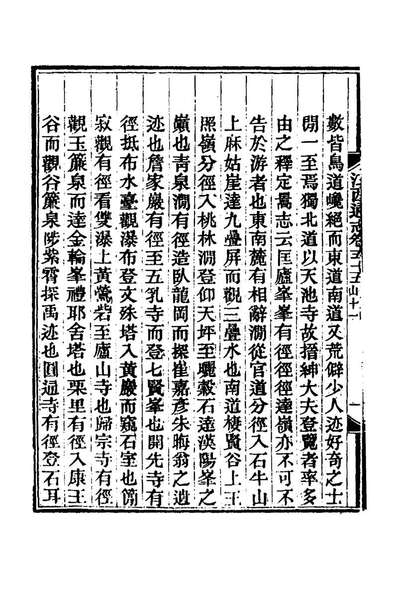 數皆鳥道巉絕而東道南道又荒僻少人迹好奇之士
閒一至焉獨北道以天池寺故搢紳大夫登覽者率多
由之釋定暠志云匡廬峯峯有徑徑徑達嶺亦不可不
告於游者也東南麓有相辭澗從官道分徑入石牛山
上麻姑崖達九疊屏而觀三疊水也南道棲賢谷上王
照嶺分徑入桃林澗登仰天坪至曬穀石達漢陽峯之
巔也青泉澗有徑造臥龍岡而探崔嘉彥朱晦翁之遺
迹也詹家巖有徑至五乳寺而登七賢峯也開先寺有
徑抵布水臺觀瀑布登文殊塔入黃巖而窺石室也簡
寂觀有徑看雙瀑上黃鶯岩至廬山寺也歸宗寺有徑
觀玉簾泉而達金輪峯禮耶舍塔也栗里有徑入康王
谷而觀谷簾泉陟紫霄探禹迹也圓通寺有徑登石耳
江西通志卷五十五 山十一 一